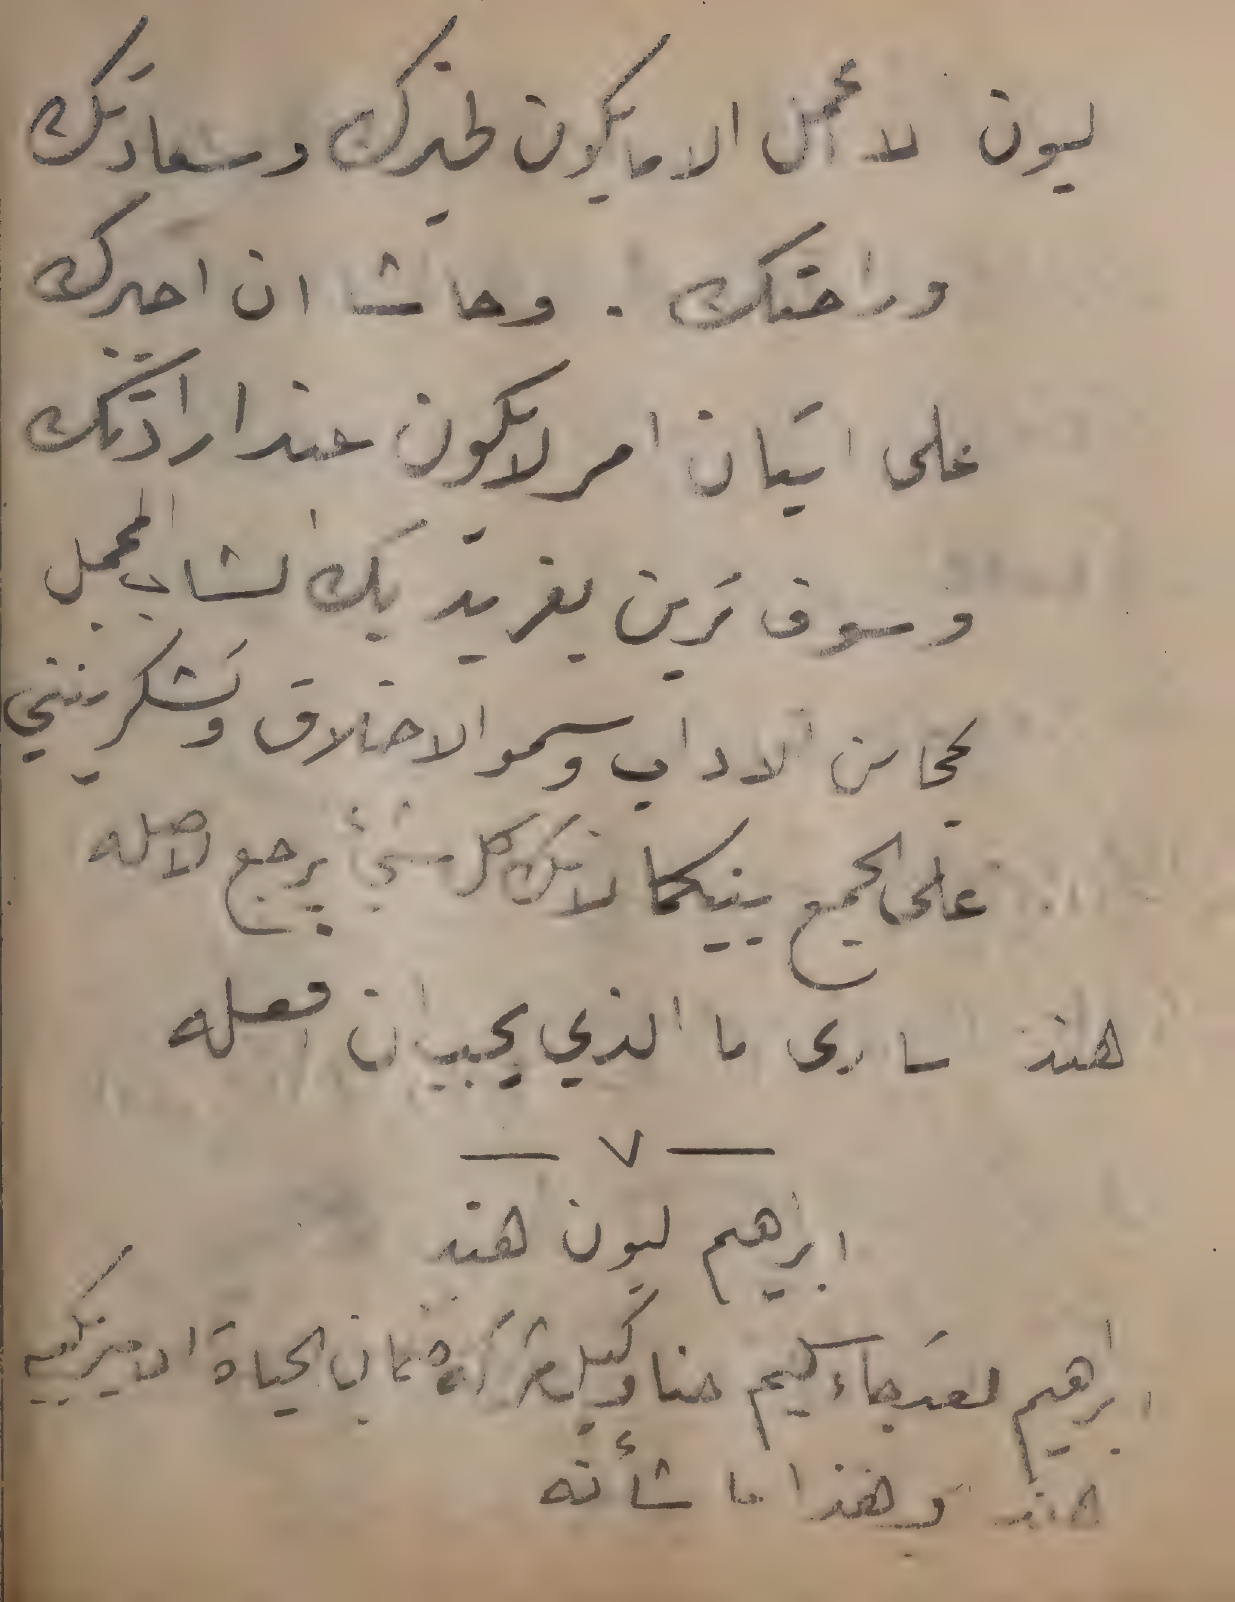 ليون لا أعمل الا ما يكون لخيرك وسعادتك
وراحتك . وحاشا ان اجبرك
على اتيان امر لا يكون عند ارادتك
وسوف ترين بفريد بك الشاب المجمل
بمحاسن الاداب وسمو الاخلاق وتشكرينني
على الجمع بينكما لانك كل شيء يرجع لاصله
هند سارى ما الذي يجب ان افعله
— ٧ —
ابراهيم ليون هند
ابراهيم لقد جاء سليم حنا وكيل شركة ضمان الحياة الاميركيه
هند وهذا ما شأنه